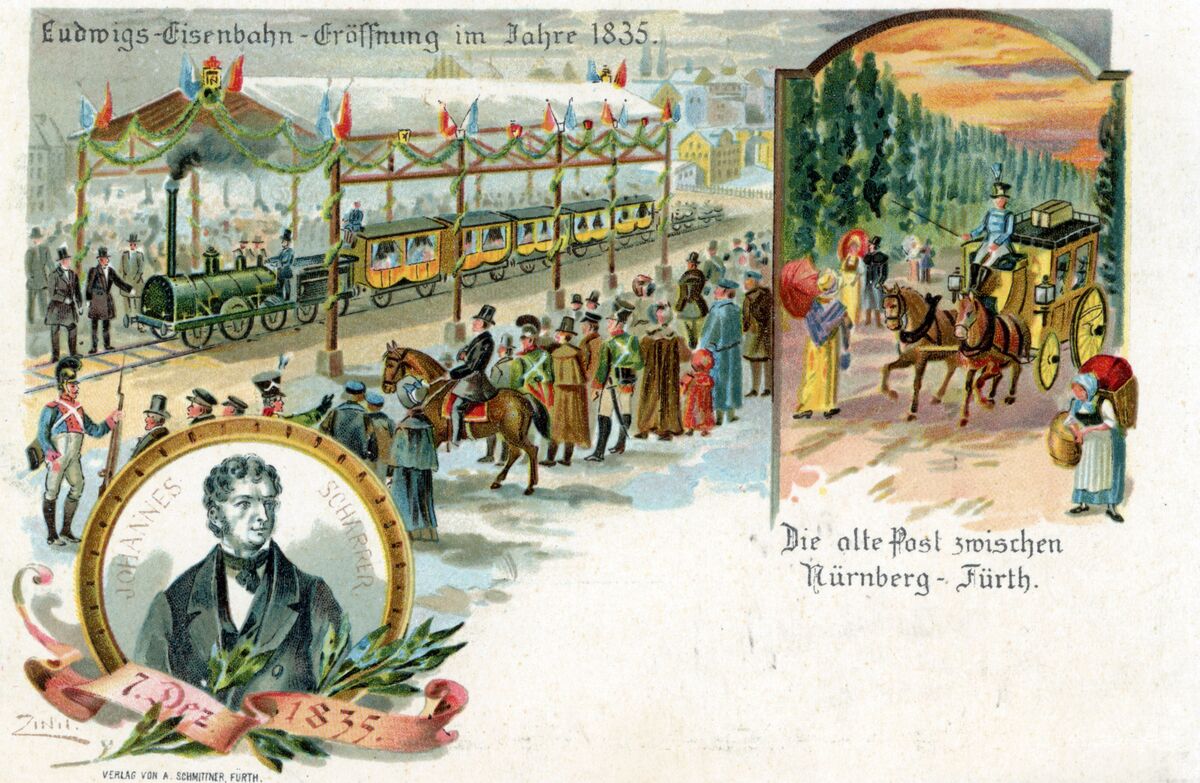 Ludwigs-Eisenbahn-Eröffnung im Jahre 1835.
JOHANNES SCHARRER
7. Dez 1835.
Die alte Post zwischen
Nürnberg - Fürth.
VERLAG VON A. SCHMITTNER, FÜRTH.